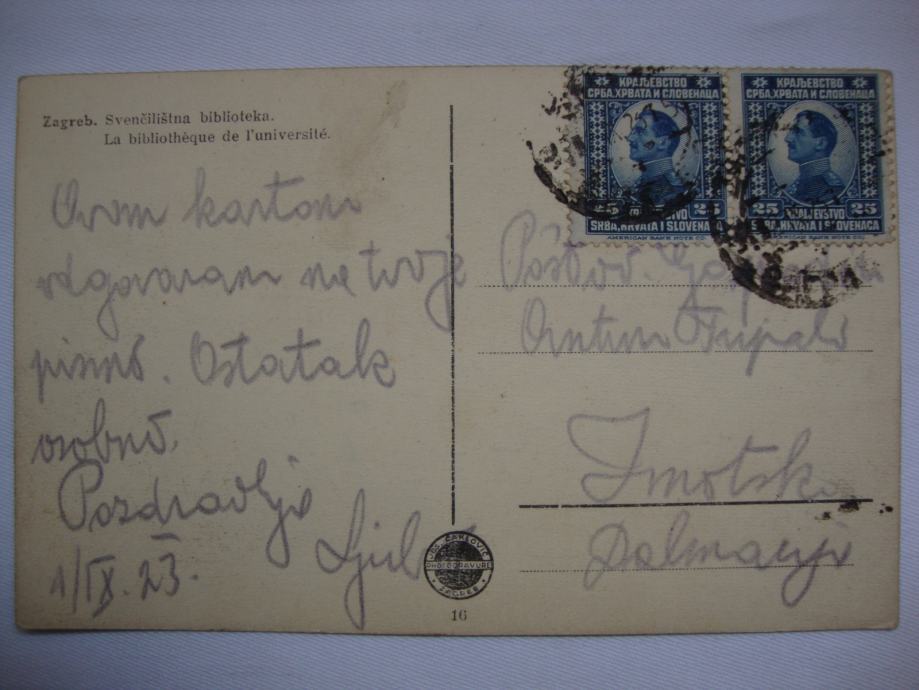 Zagreb. Svenčilištna biblioteka.
La bibliothèque de l'université.
Ovom kartom
odgovaram na tvoje
pismo. Ostatak
osobno.
Pozdravlja
Ljub
1/IX. 23.
КРАЉЕВСТВО
СРБА, ХРВАТА И СЛОВЕНАЦА
25 KRALJEVSTVO 25
SRBA, HRVATA I SLOVENACA
AMERICAN BANK NOTE CO.
КРАЉЕВСТВО
СРБА, ХРВАТА И СЛОВЕНАЦА
25 KRALJEVSTVO 25
SRBA, HRVATA I SLOVENACA
AMERICAN BANK NOTE CO.
Poštov. Gospodin
Antun Tripalo
Imotski
Dalmacija
ČAKLOVIĆ
ZAGREB
16